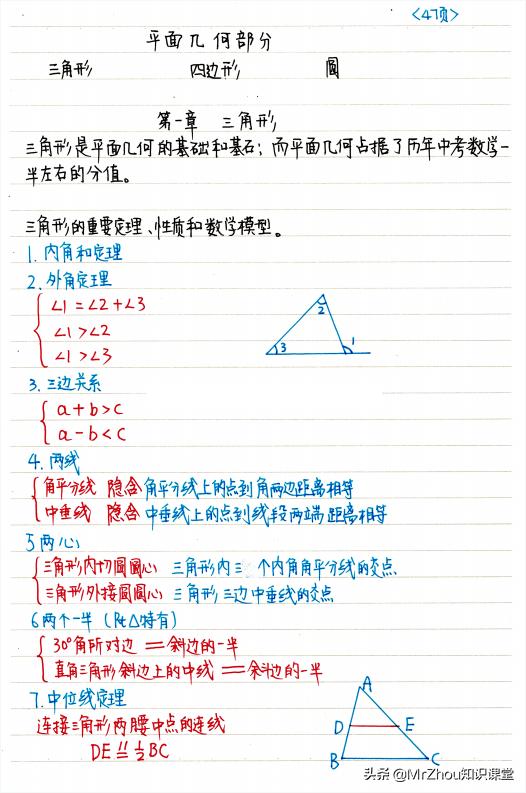 <47页>
平面几何部分
三角形 四边形 圆
第一章 三角形
三角形是平面几何的基础和基石；而平面几何占据了历年中考数学一
半左右的分值。
三角形的重要定理、性质和数学模型。
1. 内角和定理
2. 外角定理
∠1=∠2+∠3
∠1>∠2
∠1>∠3
2
3
1
3. 三边关系
a+b>c
a-b<c
4. 两线
角平分线 隐含 角平分线上的点到角两边距离相等
中垂线 隐含 中垂线上的点到线段两端距离相等
5 两心
三角形内切圆圆心 三角形内三个内角角平分线的交点
三角形外接圆圆心 三角形三边中垂线的交点
6 两个一半 (Rt△特有)
30°角所对边 == 斜边的一半
直角三角形斜边上的中线 == 斜边的一半
7. 中位线定理
连接三角形两腰中点的连线
DE∥=½BC
A
D E
B C
头条 @MrZhou知识课堂